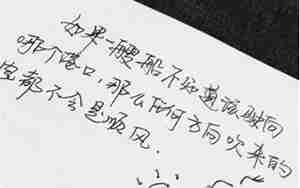 如果一艘船不知道该驶向
哪个港口,那么任何方向吹来的
风都不会是顺风.